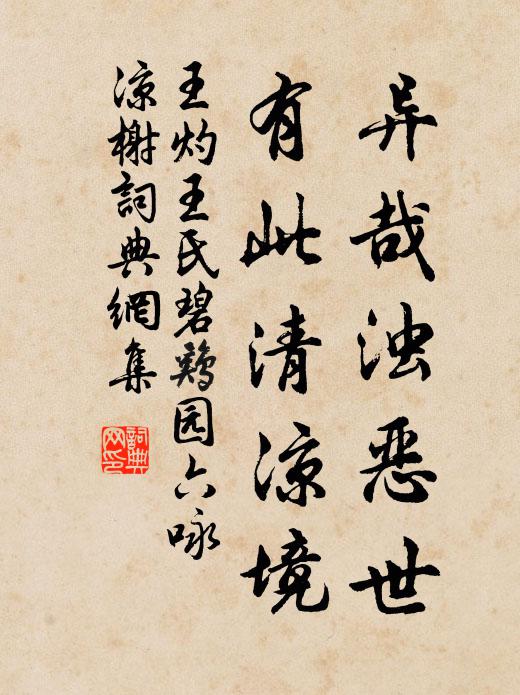 异哉浊恶世
有此清凉境
王灼王氏碧鸡园六咏
凉榭詞典網集
詞典
网印